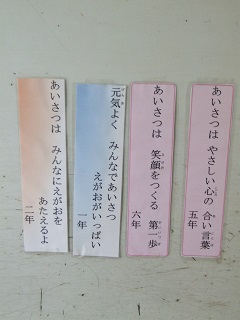 あいさつは やさしい心の 合い言葉
五年
あいさつは 笑顔をつくる 第一歩
六年
元気よく みんなであいさつ
えがおがいっぱい
一年
あいさつは みんなにえがおを
あたえるよ
二年